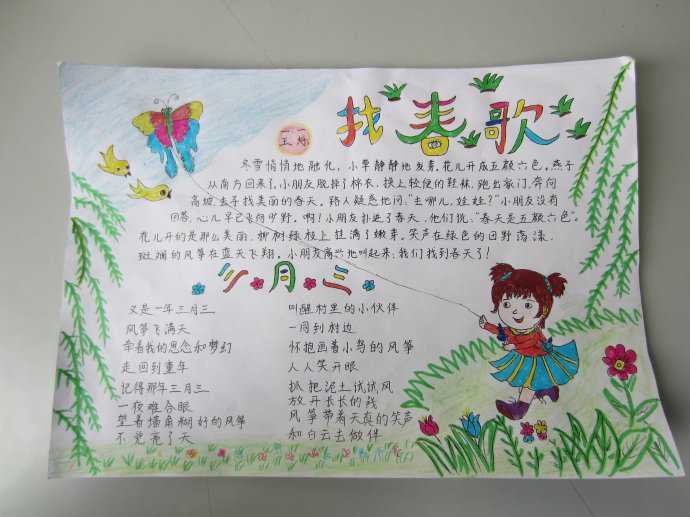 找春歌
冬雪悄悄地融化，小草静静地发芽，花儿开成五颜六色，燕子
从南方回来了，小朋友脱掉了棉衣，换上轻便的鞋袜，跑出家门，奔向
高坡去寻找美丽的春天。路人疑惑地问："去哪儿，娃娃？"小朋友没有
回答，心儿早已飞向田野。啊！小朋友扑进了春天，他们说："春天是五颜六色"。
花儿开的是那么美丽，柳树绿枝上挂满了嫩芽。笑声在绿色的田野荡漾，
斑斓的风筝在蓝天飞翔。小朋友高兴地叫起来：我们找到春天了！
三月三
又是一年三月三
风筝飞满天
牵着我的思念和梦幻
走回到童年
记得那年三月三
一夜难合眼
望着墙角糊好的风筝
不觉亮了天
叫醒村里的小伙伴
一同到村边
怀抱画着小鸟的风筝
人人笑开眼
抓把泥土试试风
放开长长的线
风筝带着天真的笑声
和白云去做伴